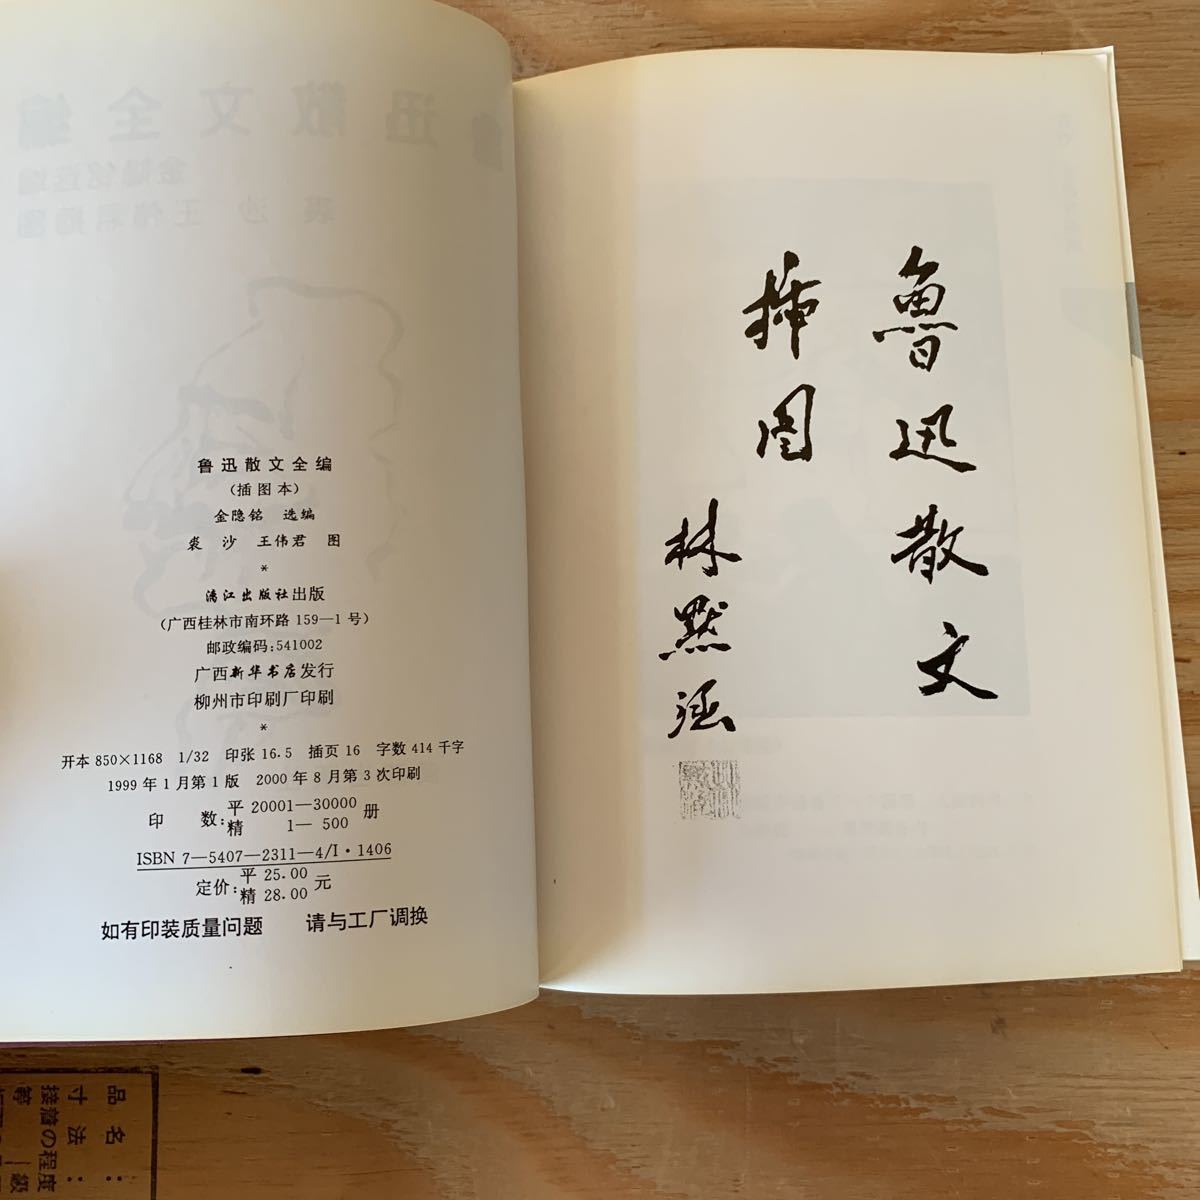 鲁迅散文全编
(插图本)
金隐铭 选编
裘 沙 王伟君 图
*
漓江出版社出版
(广西桂林市南环路 159—1 号)
邮政编码:541002
广西新华书店发行
柳州市印刷厂印刷
*
开本 850×1168 1/32 印张 16.5 插页 16 字数 414 千字
1999 年 1 月第 1 版 2000 年 8 月第 3 次印刷
印 数:平 20001—30000 册
精 1— 500
ISBN 7—5407—2311—4/I·1406
定价:平 25.00 元
精 28.00
如有印装质量问题 请与工厂调换
魯迅散文
插图
林默涵
品名:
寸法:
接着の程度
等級